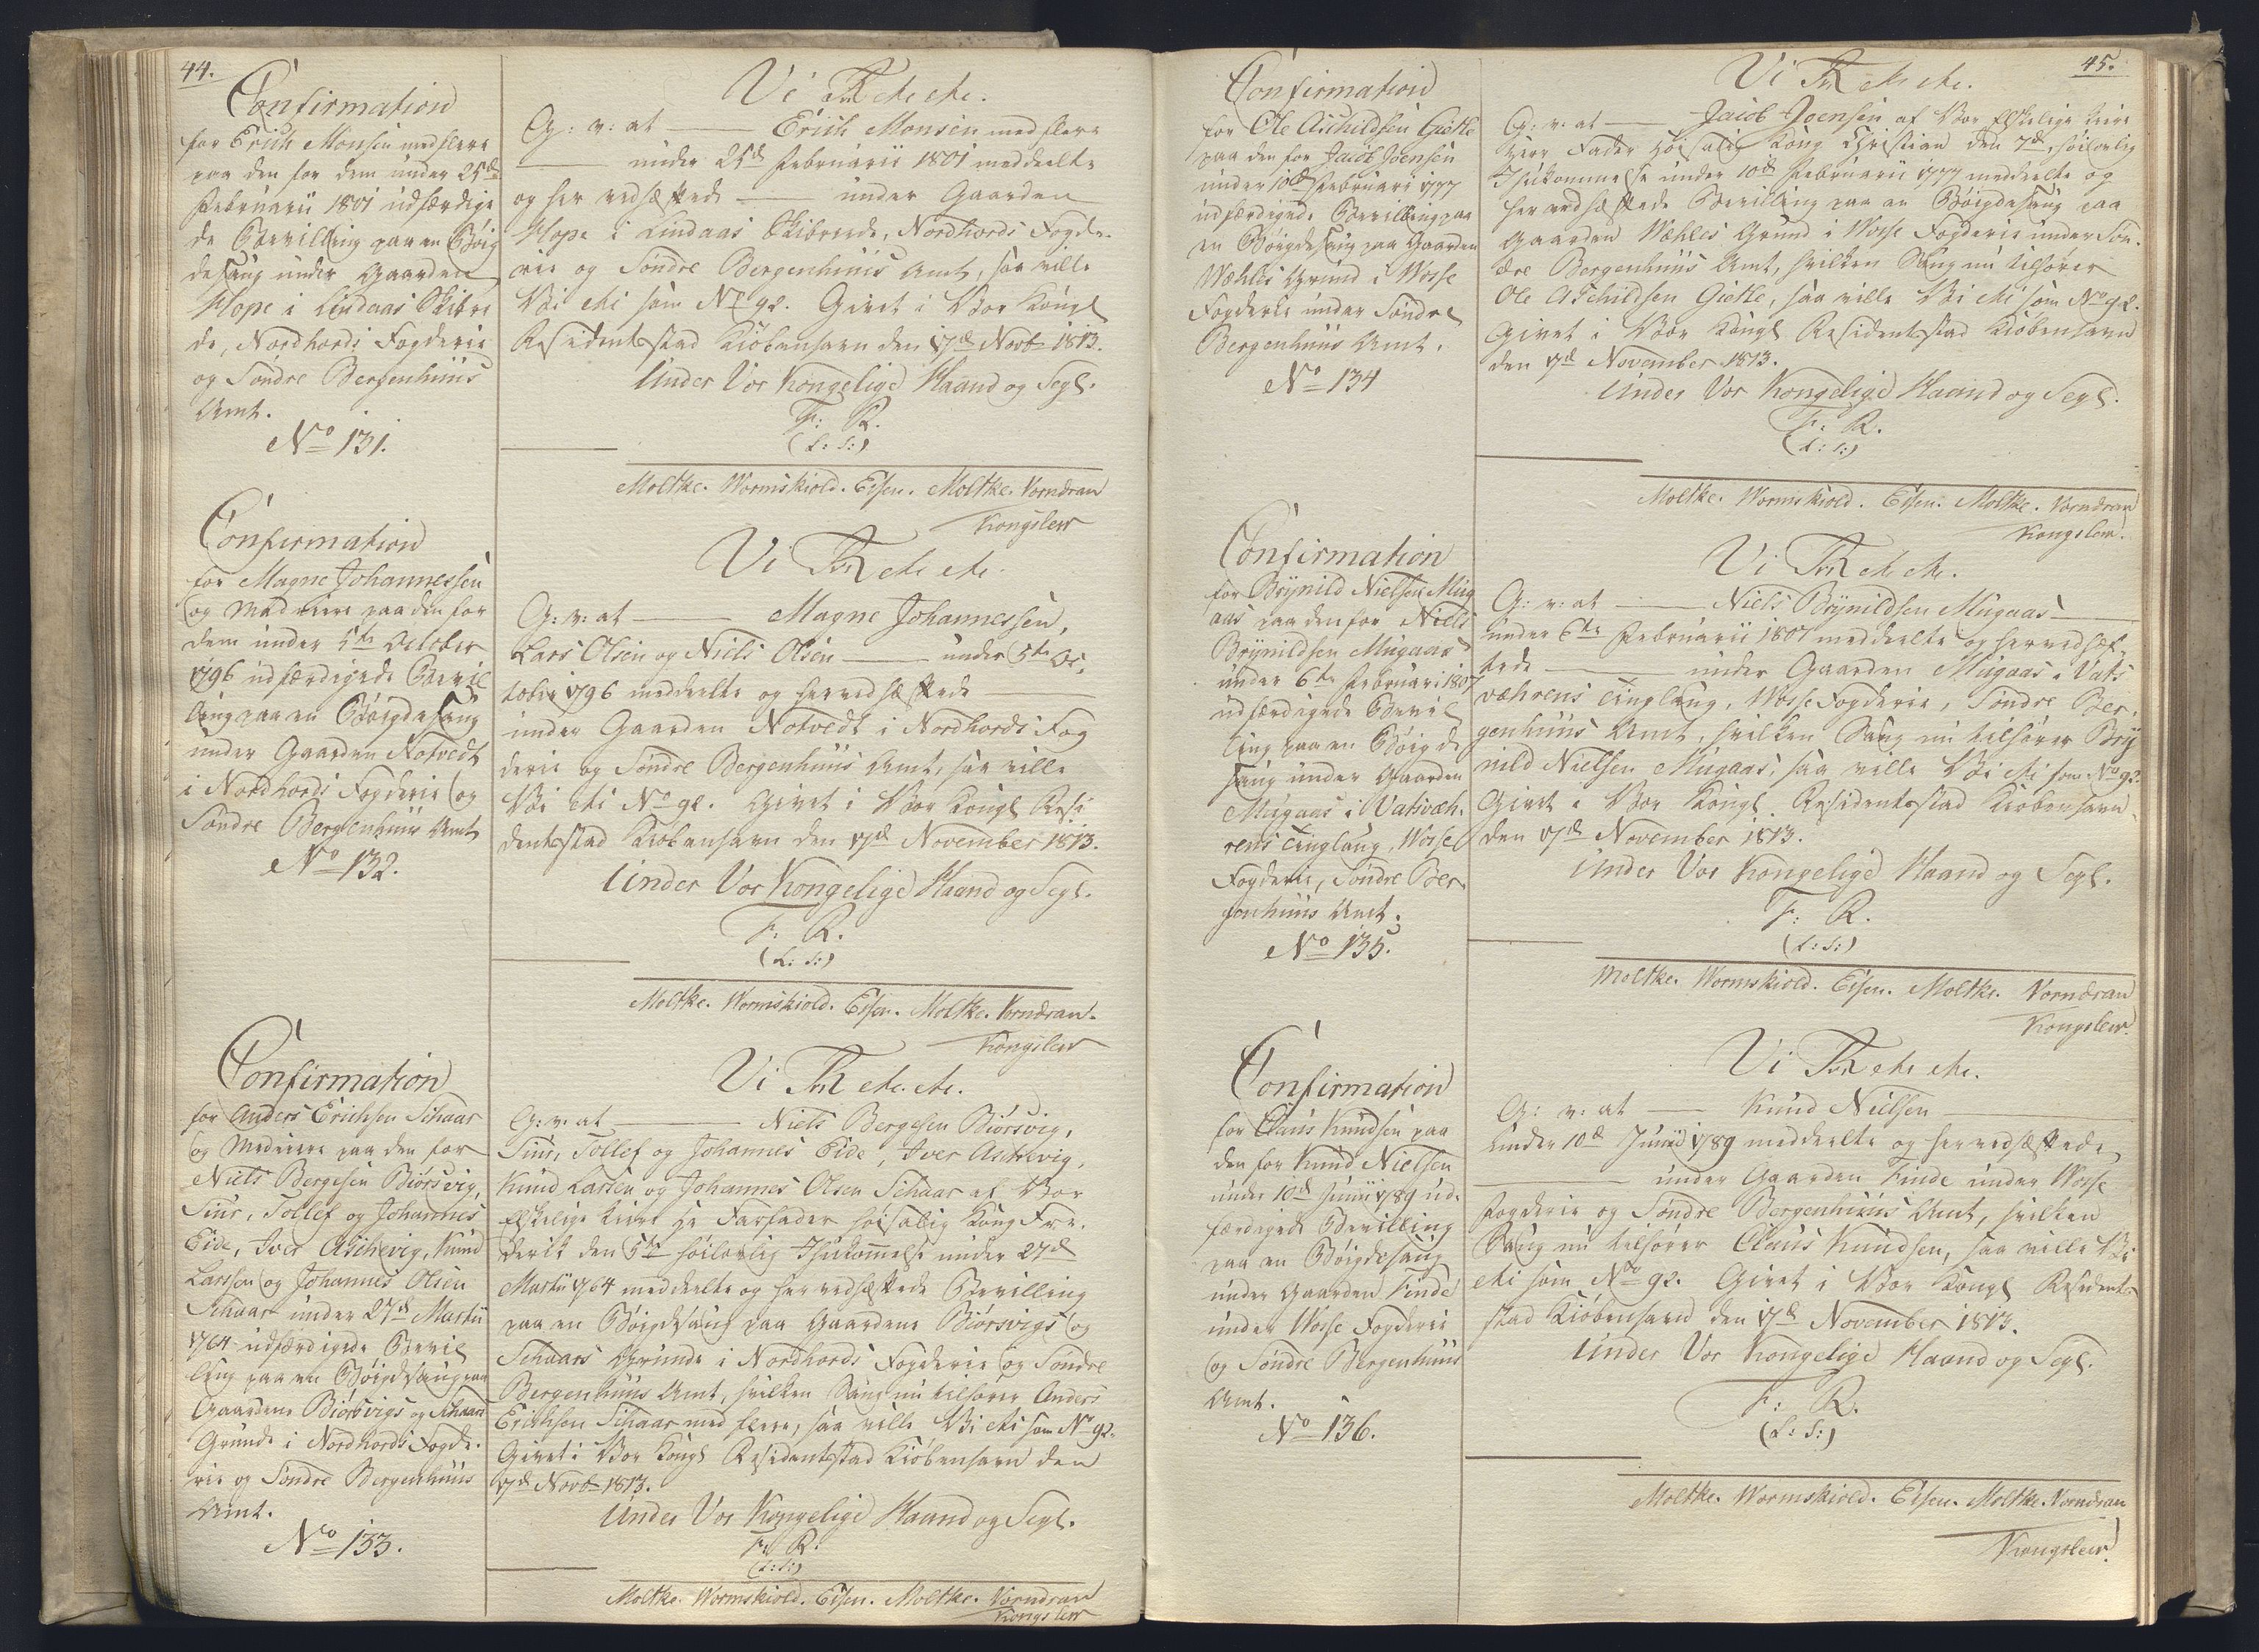 44.
Confirmation
for Erich Monsen med flere
paa den for dem under 25de
Februarii 1801 udfærdige
de Bevilling paa en Böig
desaug under Gaarden
Hope i Lindaas Skibre
de, Nordhords Fogderie
og Söndre Bergenhuus
Amt.
No 131.
Vi Fr R etc etc.
G: v: at — Erich Monsen med flere
— under 25de Februarii 1801 meddeelte
og her vedhæftede — under Gaarden
Hope i Lindaas Skibrede, Nordhords Fogde-
rie og Söndre Bergenhuus Amt, saa ville
Vi etc som No 92. Givet i Vor Kongl
Residentsstad Kiöbenhavn den 17de Novb 1813.
Under Vor Kongelige Haand og Segl.
F: R.
(L: S:)
Moltke. Wormskiold. Eisen. Moltke. Vorndran
Kongslew
Confirmation
for Magne Johannessen
og Medeiere paa den for
dem under 5te October
1796 udfærdigede Bevil
ling paa en Böigdesaug
under Gaarden Notvedt
i Nordhords Fogderie og
Söndre Bergenhuus Amt
No 132.
Vi Fr R etc etc.
G: v: at — Magne Johannessen,
Lars Olsen og Niels Olsen — under 5te Oc-
tober 1796 meddeelte og her vedhæftede —
under Gaarden Notvedt i Nordhords Fog
derie og Söndre Bergenhuus Amt, saa ville
Vi etc No 92. Givet i Vor Kongl Resi
dentsstad Kiöbenhavn den 17de November 1813.
Under Vor Kongelige Haand og Segl.
F: R.
(L: S:)
Moltke. Wormskiold. Eisen. Moltke. Vorndran.
Kongslew
Confirmation
for Anders Erichsen Schaar
og Medeiere paa den for
Niels Bergesen Biörsvig,
Siur, Tollef og Johannes
Eide, Iver Aschevig, Knud
Larsen og Johannes Olsen
Schaar under 27de Martii
1764 udfærdigede Bevil
ling paa en Böigdesaug paa
Gaardene Biörsvigs og Schaars
Grunde i Nordhords Fogde-
rie og Söndre Bergenhuus
Amt.
No 133.
Vi Fr R etc. etc.
G: v: at — Niels Bergesen Biörsvig,
Siur, Tollef og Johannes Eide, Iver Aschevig,
Knud Larsen og Johannes Olsen Schaar af Vor
elskelige kiere Hr Farfader höisalig Kong Fre-
derik den 5te höilovlig Ihukommelse under 27de
Martii 1764 meddeelte og her vedhæftede Bevilling
paa en Böigdesaug paa Gaardene Biörsvigs og
Schaars Grunde i Nordhords Fogderie og Söndre
Bergenhuus Amt, hvilken Saug nu tilhører Anders
Erichsen Schaar med flere, saa ville Vi etc som No 92.
Givet i Vor Kongl Residentsstad Kiöbenhavn den
17de Novb 1813.
Under Vor Kongelige Haand og Segl.
F: R.
(L: S:)
Moltke. Wormskiold. Eisen. Moltke. Vorndran
Kongslew
45.
Confirmation
for Ole Aschildsen Gietle
paa den for Jacob Joensen
under 10de Februarii 1777
udfærdigede Bevilling paa
en Böigdesaug paa Gaarden
Wæhles Grund i Wosse
Fogderie under Söndre
Bergenhuus Amt.
No 134
Vi Fr R etc etc.
G: v: at — Jacob Joensen af Vor elskelige kiere
Herr Fader Höisalig Kong Christian den 7de, höilovlig
Ihukommelse under 10de Februarii 1777 meddeelte og
her vedhæftede Bevilling paa en Böigdesaug paa
Gaarden Wæhles Grund i Wosse Fogderie under Sön-
dre Bergenhuus Amt, hvilken Saug nu tilhører
Ole Aschildsen Gietle, saa ville Vi etc som No 92.
Givet i Vor Kongl Residentsstad Kiöbenhavn
den 17de November 1813.
Under Vor Kongelige Haand og Segl.
F: R.
(L: S:)
Moltke. Wormskiold. Eisen. Moltke. Vorndran
Kongslew.
Confirmation
for Brynild Nielsen Mug
aas paa den for Niels
Brynildsen Mugaas
under 6te Februarii 1807
udfærdigede Bevil
ling paa en Böigde
saug under Gaarden
Mugaas i Vatsvæh-
rens Tinglaug, Wosse
Fogderie, Söndre Ber-
genhuus Amt.
No 135.
Vi Fr R etc etc.
G: v: at — Niels Brynildsen Mugaas —
under 6te Februarii 1807 meddeelte og her vedhæf-
tede — under Gaarden Mugaas i Vats
væhrens Tinglaug, Wosse Fogderie, Söndre Ber-
genhuus Amt, hvilken Saug nu tilhører Bry
nild Nielsen Mugaas, saa ville Vi etc som No 92.
Givet i Vor Kongl Residentsstad Kiöbenhavn
den 17de November 1813.
Under Vor Kongelige Haand og Segl.
F: R.
(L: S:)
Moltke. Wormskiold. Eisen. Moltke. Vorndran
Kongslew.
Confirmation
for Claus Knudsen paa
den for Knud Nielsen
under 10de Junii 1789 ud-
færdigede Bevilling
paa en Böigdesaug
under Gaarden Finde
under Wosse Fogderie
og Söndre Bergenhuus
Amt.
No 136.
Vi Fr R etc etc.
G: v: at — Knud Nielsen —
under 10de Junii 1789 meddeelte og her vedhæftede
— under Gaarden Finde under Wosse
Fogderie og Söndre Bergenhuus Amt, hvilken
Saug nu tilhører Claus Knudsen, saa ville Vi
etc som No 92. Givet i Vor Kongl Residents
stad Kiöbenhavn den 17de November 1813.
Under Vor Kongelige Haand og Segl.
F: R.
(L: S:)
Moltke. Wormskiold. Eisen. Moltke. Vorndran
Kongslew.